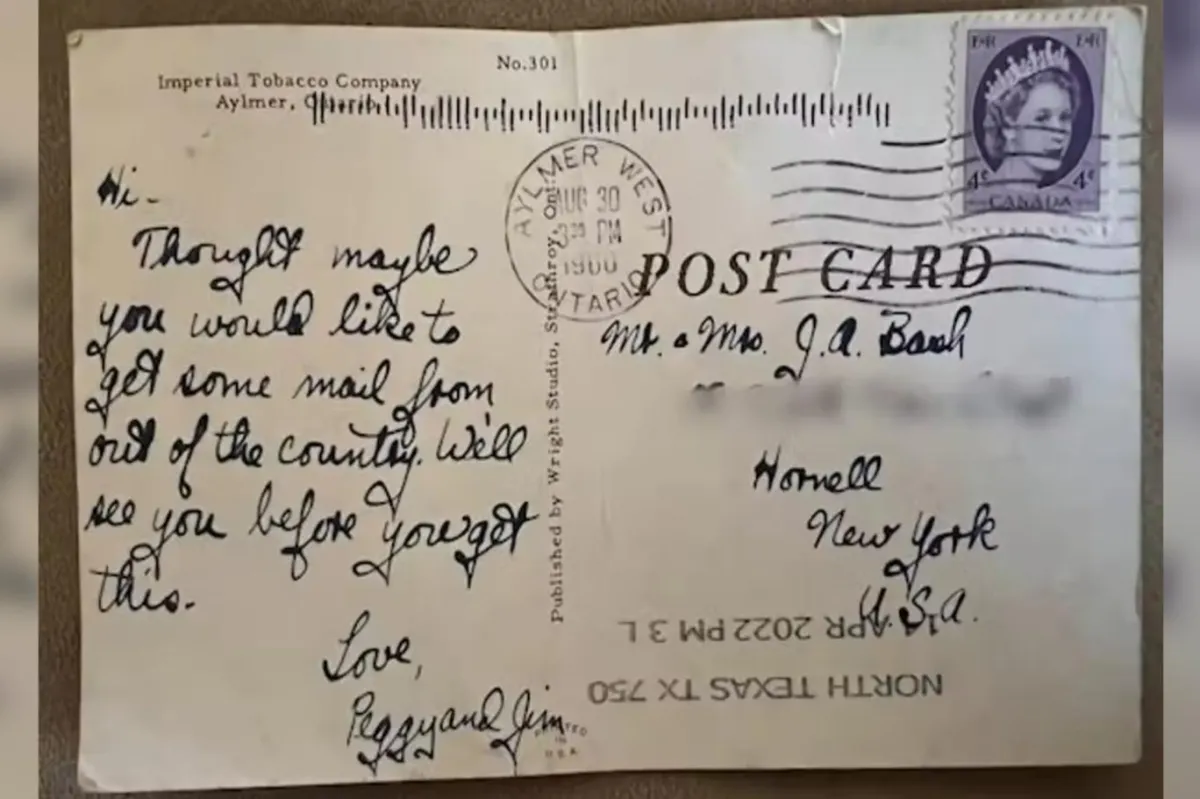 No.301
Imperial Tobacco Company
Aylmer, Ontario
Hi-
Thought maybe
you would like to
get some mail from
out of the country. We'll
see you before you get
this.
Love,
Peggy and Jim
Published by Wright Studio, Strathroy, Ont.
PRINTED
IN
U.S.A.
AYLMER WEST
AUG 30
3 PM
ONTARIO
E R
E R
4¢
4¢
CANADA
POST CARD
Mr. & Mrs. J.A. Bash
Hornell
New York
U.S.A.
NORTH TEXAS TX 750
APR 2022 PM 3 L